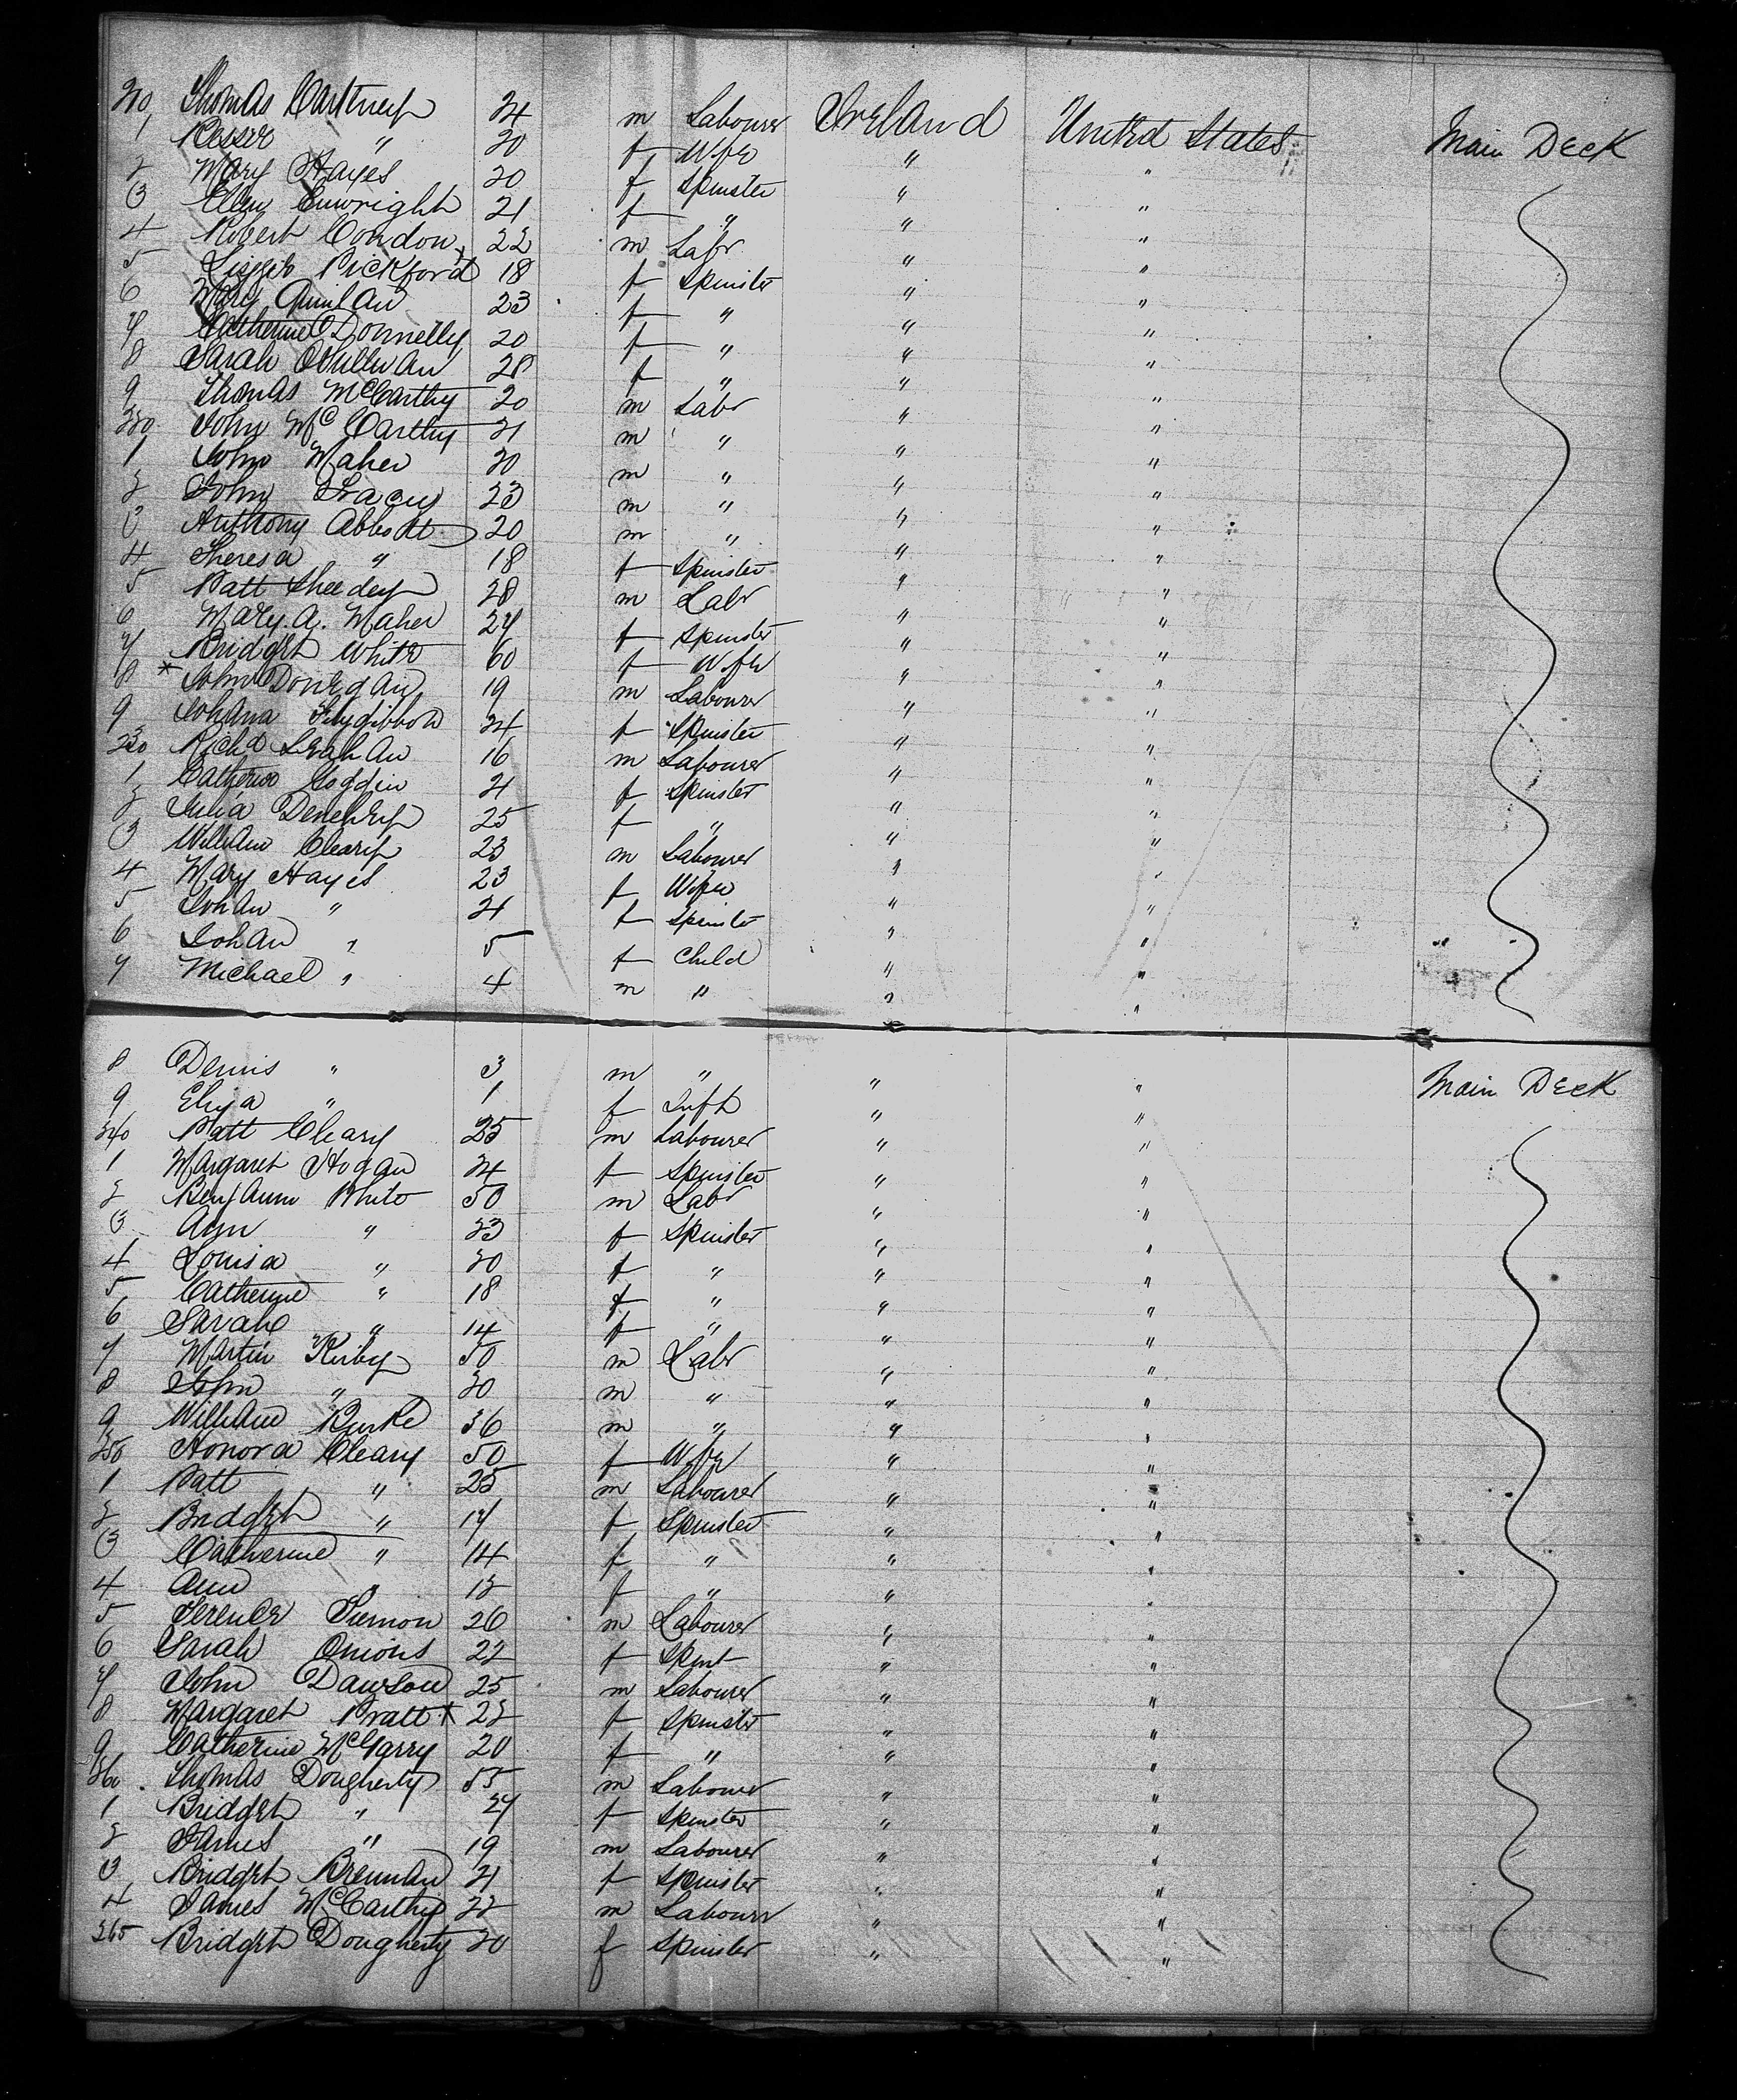 210 Thomas Cartney 24 m Labourer Ireland United States Main Deck
1 " 20 f Wife " "
2 Mary Hayes 20 f Spinster " "
3 Ellen Enwright 21 f " " "
4 Robert Condon 22 m Labr " "
5 Lizzie Pickford 18 f Spinster " "
6 Mary Quinlan 23 f " " "
7 Catherine Donnelly 20 f " " "
8 Sarah OSullivan 28 f " " "
9 Thomas McCarthy 20 m Labr " "
220 John McCarthy 21 m " " "
1 John Maher 20 m " " "
2 John Tracy 23 m " " "
3 Anthony Abbott 20 m " " "
4 Theresa " 18 f Spinster " "
5 Patt Sheedey 28 m Labr " "
6 Mary. A. Maher 27 f Spinster " "
7 Bridget White 60 f Wife " "
8 * John Donegan 19 m Labourer " "
9 Johana Fitzgibbon 24 f Spinster " "
230 Richd Leahan 16 m Labourer " "
1 Catherine Goggin 21 f Spinster " "
2 Julia Denehey 25 f " " "
3 William Cleary 23 m Labourer " "
4 Mary Hayes 23 f Wife " "
5 Johan " 21 f Spinster " "
6 Johan " 5 f Child " "
7 Michael " 4 m " " "
8 Dennis " 3 m " " " Main Deck
9 Eliza " 1 f Inft " "
240 Patt Cleary 25 m Labourer " "
1 Margaret Hogan 24 f Spinster " "
2 Benjamin White 50 m Labr " "
3 Ann " 23 f Spinster " "
4 Louisa " 20 f " " "
5 Catherine " 18 f " " "
6 Sarah " 14 f " " "
7 Martin Kirby 50 m Labr " "
8 John " 20 m " " "
9 William Burke 36 m " " "
250 Honora Cleary 50 f Wife " "
1 Patt " 25 m Labourer " "
2 Bridget " 17 f Spinster " "
3 Catherine " 14 f " " "
4 Ann " 12 f " " "
5 Terence 26 m Labourer " "
6 Sarah Onions 22 f Spint " "
7 John Dawson 25 m Labourer " "
8 Margaret Pratt * 22 f Spinster " "
9 Catherine McGarry 20 f " " "
260 Thomas Dougherty 55 m Labourer " "
1 Bridget " 27 f Spinster " "
2 James " 19 m Labourer " "
3 Bridget Brennan 21 f Spinster " "
4 James McCarthy 22 m Labourer " "
265 Bridget Dougherty 20 f Spinster " "